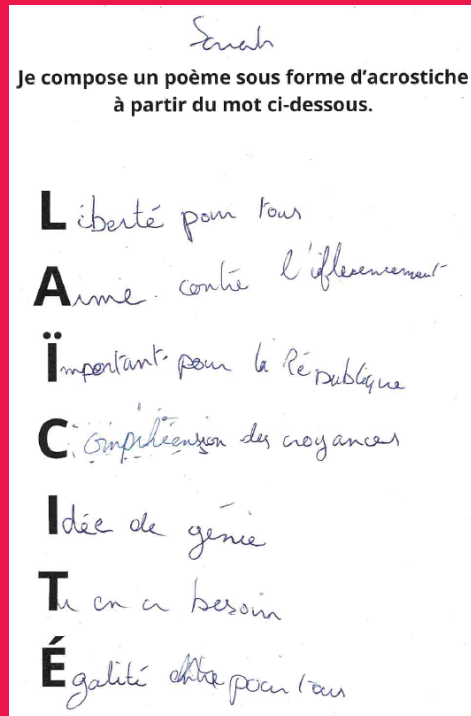 Sarah
Je compose un poème sous forme d'acrostiche
à partir du mot ci-dessous.
Liberté pour tous
Arme contre l'iflesencement
Important pour la République
Compréension des croyances
Idée de génie
Tu en a besoin
Égalité pour tous